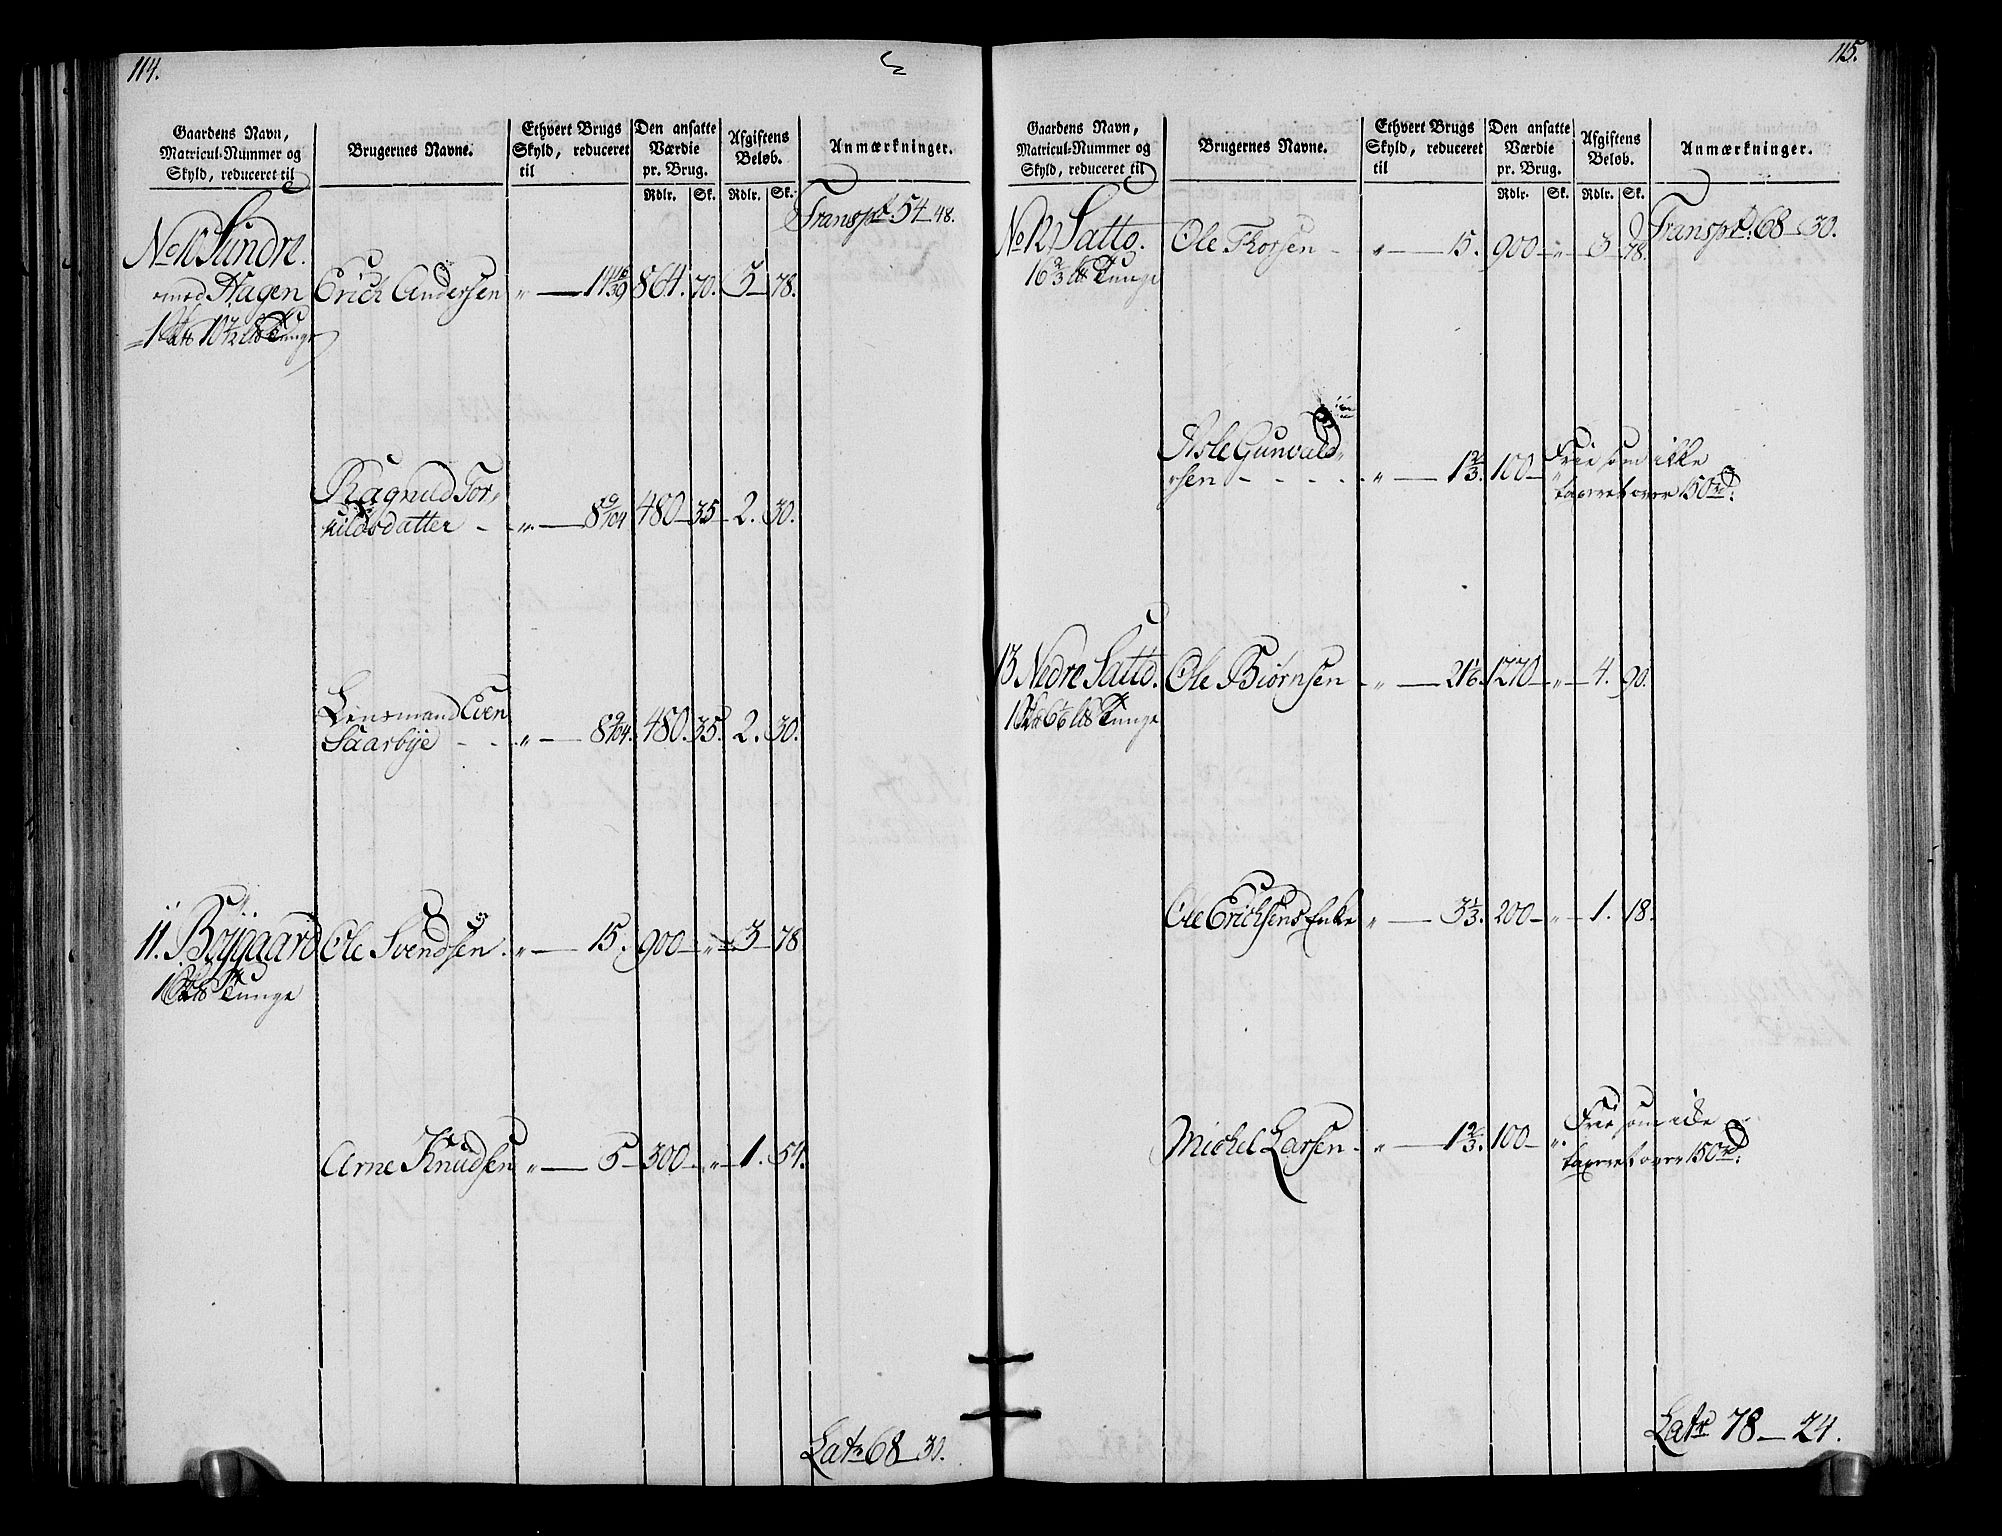 114.
Gaardens Navn,
Matricul-Nummer og
Skyld, reduceret til
Brugernes Navne.
Ethvert Brugs
Skyld, reduceret
til
Den ansatte
Værdie
pr. Brug.
Rdlr. Sk.
Afgiftens
Beløb.
Rdlr. Sk.
Anmærkninger.
Transpt. 54 48.
No 10 Sundre.
med Hagen Erich Andersen „ — 864. 70. 5 — 78.
Tunge
Ragnild Tor-
kildsdatter - „ — 8 9/104 480 — 35 — 2. 30.
Lensmand Even
Saarbye - - „ — 8 9/104. 480. 35. 2. 30.
11. Bøygaard Ole Svendsen. „ — 15. 900 — „ — 3 — 78
Tunge
Arne Knudsen „ — 5 — 300 — „ — 1. 54.
Latr 68 — 30.
115.
Gaardens Navn,
Matricul-Nummer og
Skyld, reduceret til
Brugernes Navne.
Ethvert Brugs
Skyld, reduceret
til
Den ansatte
Værdie
pr. Brug.
Rdlr. Sk.
Afgiftens
Beløb.
Rdlr. Sk.
Anmærkninger.
Transpt: 68 — 30.
No 12. Satto. Ole Thorsen - „ — 15. 900 — „ — 3 — 78.
16 2/3 Tunge
Asle Gunvald-
rsen - - - - „ — 1 2/3. 100 — Frie som ikke
taxeret over 150 rd:
13 Nedre Satto. Ole Biørnsen - „ — 1270 — „ — 4. 90.
Tunge
Ole Erichsens Enke „ — 3 1/3. 200 — „ — 1. 18.
Michel Larsen - „ — 1 2/3. 100 — „ Frie som ikke
taxeret over 150 rd:
Latr 78 — 24.